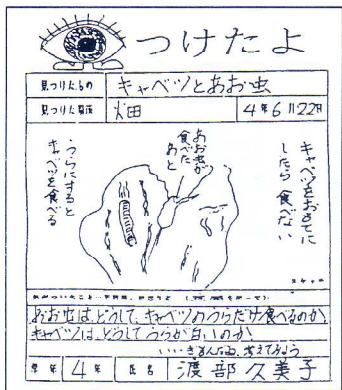 つけたよ
見つけたもの キャベツとあお虫
見つけた場所 畑 4年6月22日
キャベツをおもてに
したら食べない
あお虫が
食べた
あと
うらにすると
キャベツを食べる
あお虫はどうして、キャベツのうらだけ食べるのか。
キャベツは、どうしてうらが白いのか
いいぎもんだね。考えてみよう
学年 4年 氏名 渡部久美子